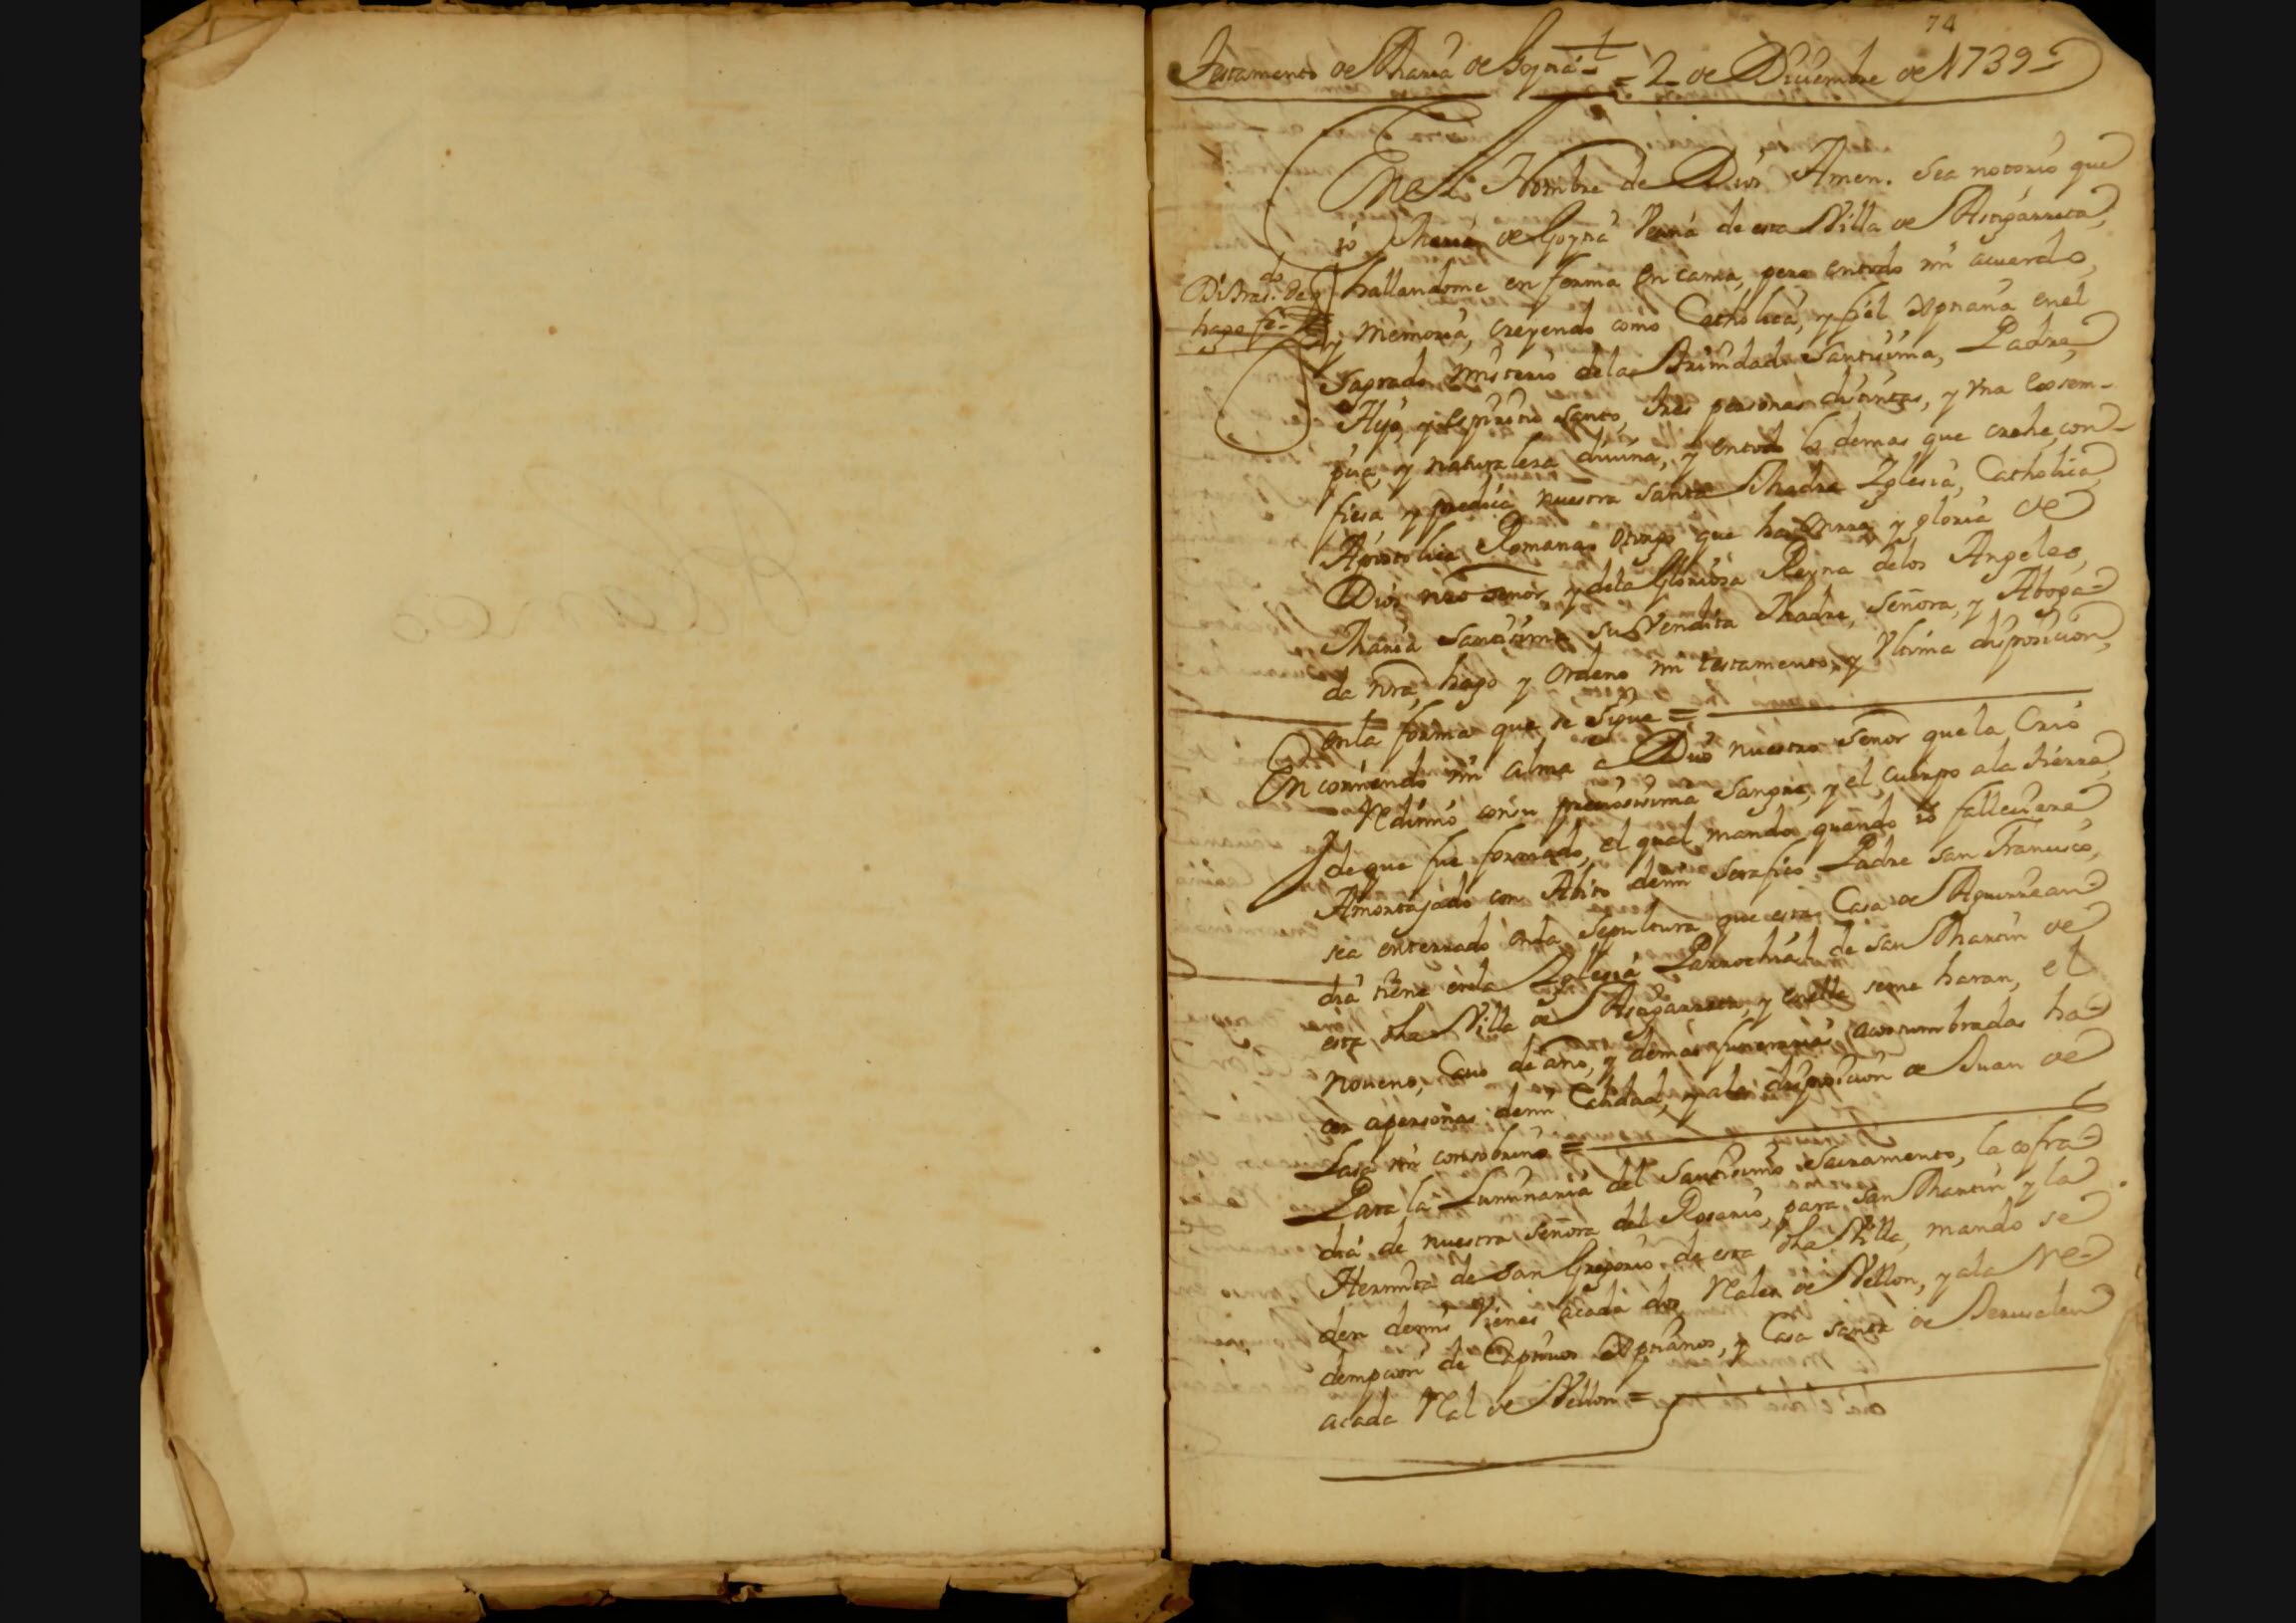 74
Testamento de Maria de Goyra = 2 de Diciembre de 1739
En el Nombre de Dios Amen. Sea notorio que
io Maria de Goyra Vecina de esta Villa de Astigarreta,
hallandome en ferma en cama, pero entodo mi acuerdo,
hago fe
y memoria, creyendo como Catholica, y fiel Xpriana enel
Sagrado misterio dela Trinidad Santisima, Padre,
Hijo, y espiritu Santo, tres personas distintas, y Vna essem-
pcia, y naturalesa diuina, y entodo lo demas que crehe, con-
fiesa y predica nuestra Santa Madre Yglesia, Catholica,
Apostolica Romana, otorgo que ha honrra, y gloria de
Dios nro señor, y dela Gloriosa Reyna delos Angeles,
Maria Santisima su Vendita Madre, Señora, y Aboga-
da nra, hago y Ordeno mi testamento, y Vltima disposicion,
enla forma que se sigue =
En comiendo mi alma a Dios nuestro Señor que la Crió
Redimió consu preciosisima Sangre, y el cuerpo ala tierra,
de que fue formado, el qual mando quando io falleciere,
Amortajado con Abito demi Serafico Padre San Francisco,
sea enterrado enla Sepultura que esta Casa de Aguirrean-
dia tiene enla Yglesia Parrochial de San Martin de
esta dha Villa de Astigarreta, y enella seme haran, el
noueno, Cauo de año, y demas funerarias acostumbradas ha-
cer apersonas demi Calidad, y ala disposicion de Juan de
Lasa mi consobrino =
Para la Luminaria del Santisimo Sacramento, la cofra-
dia de nuestra Señora del Rosario, para San Martin y la
Hermita de San Gregorio de esta dha Villa, mando se
den demis Vienes acada dos Reales de Vellon, y ala Re-
dempcion de Captiuos Xprianos, y Casa Santa de Jerusalen
acada Real de Vellon =